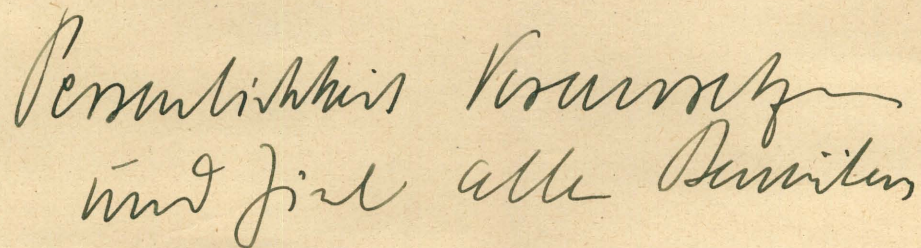 Persönlichkeit Voraussetzung
und Ziel alle Bemühens